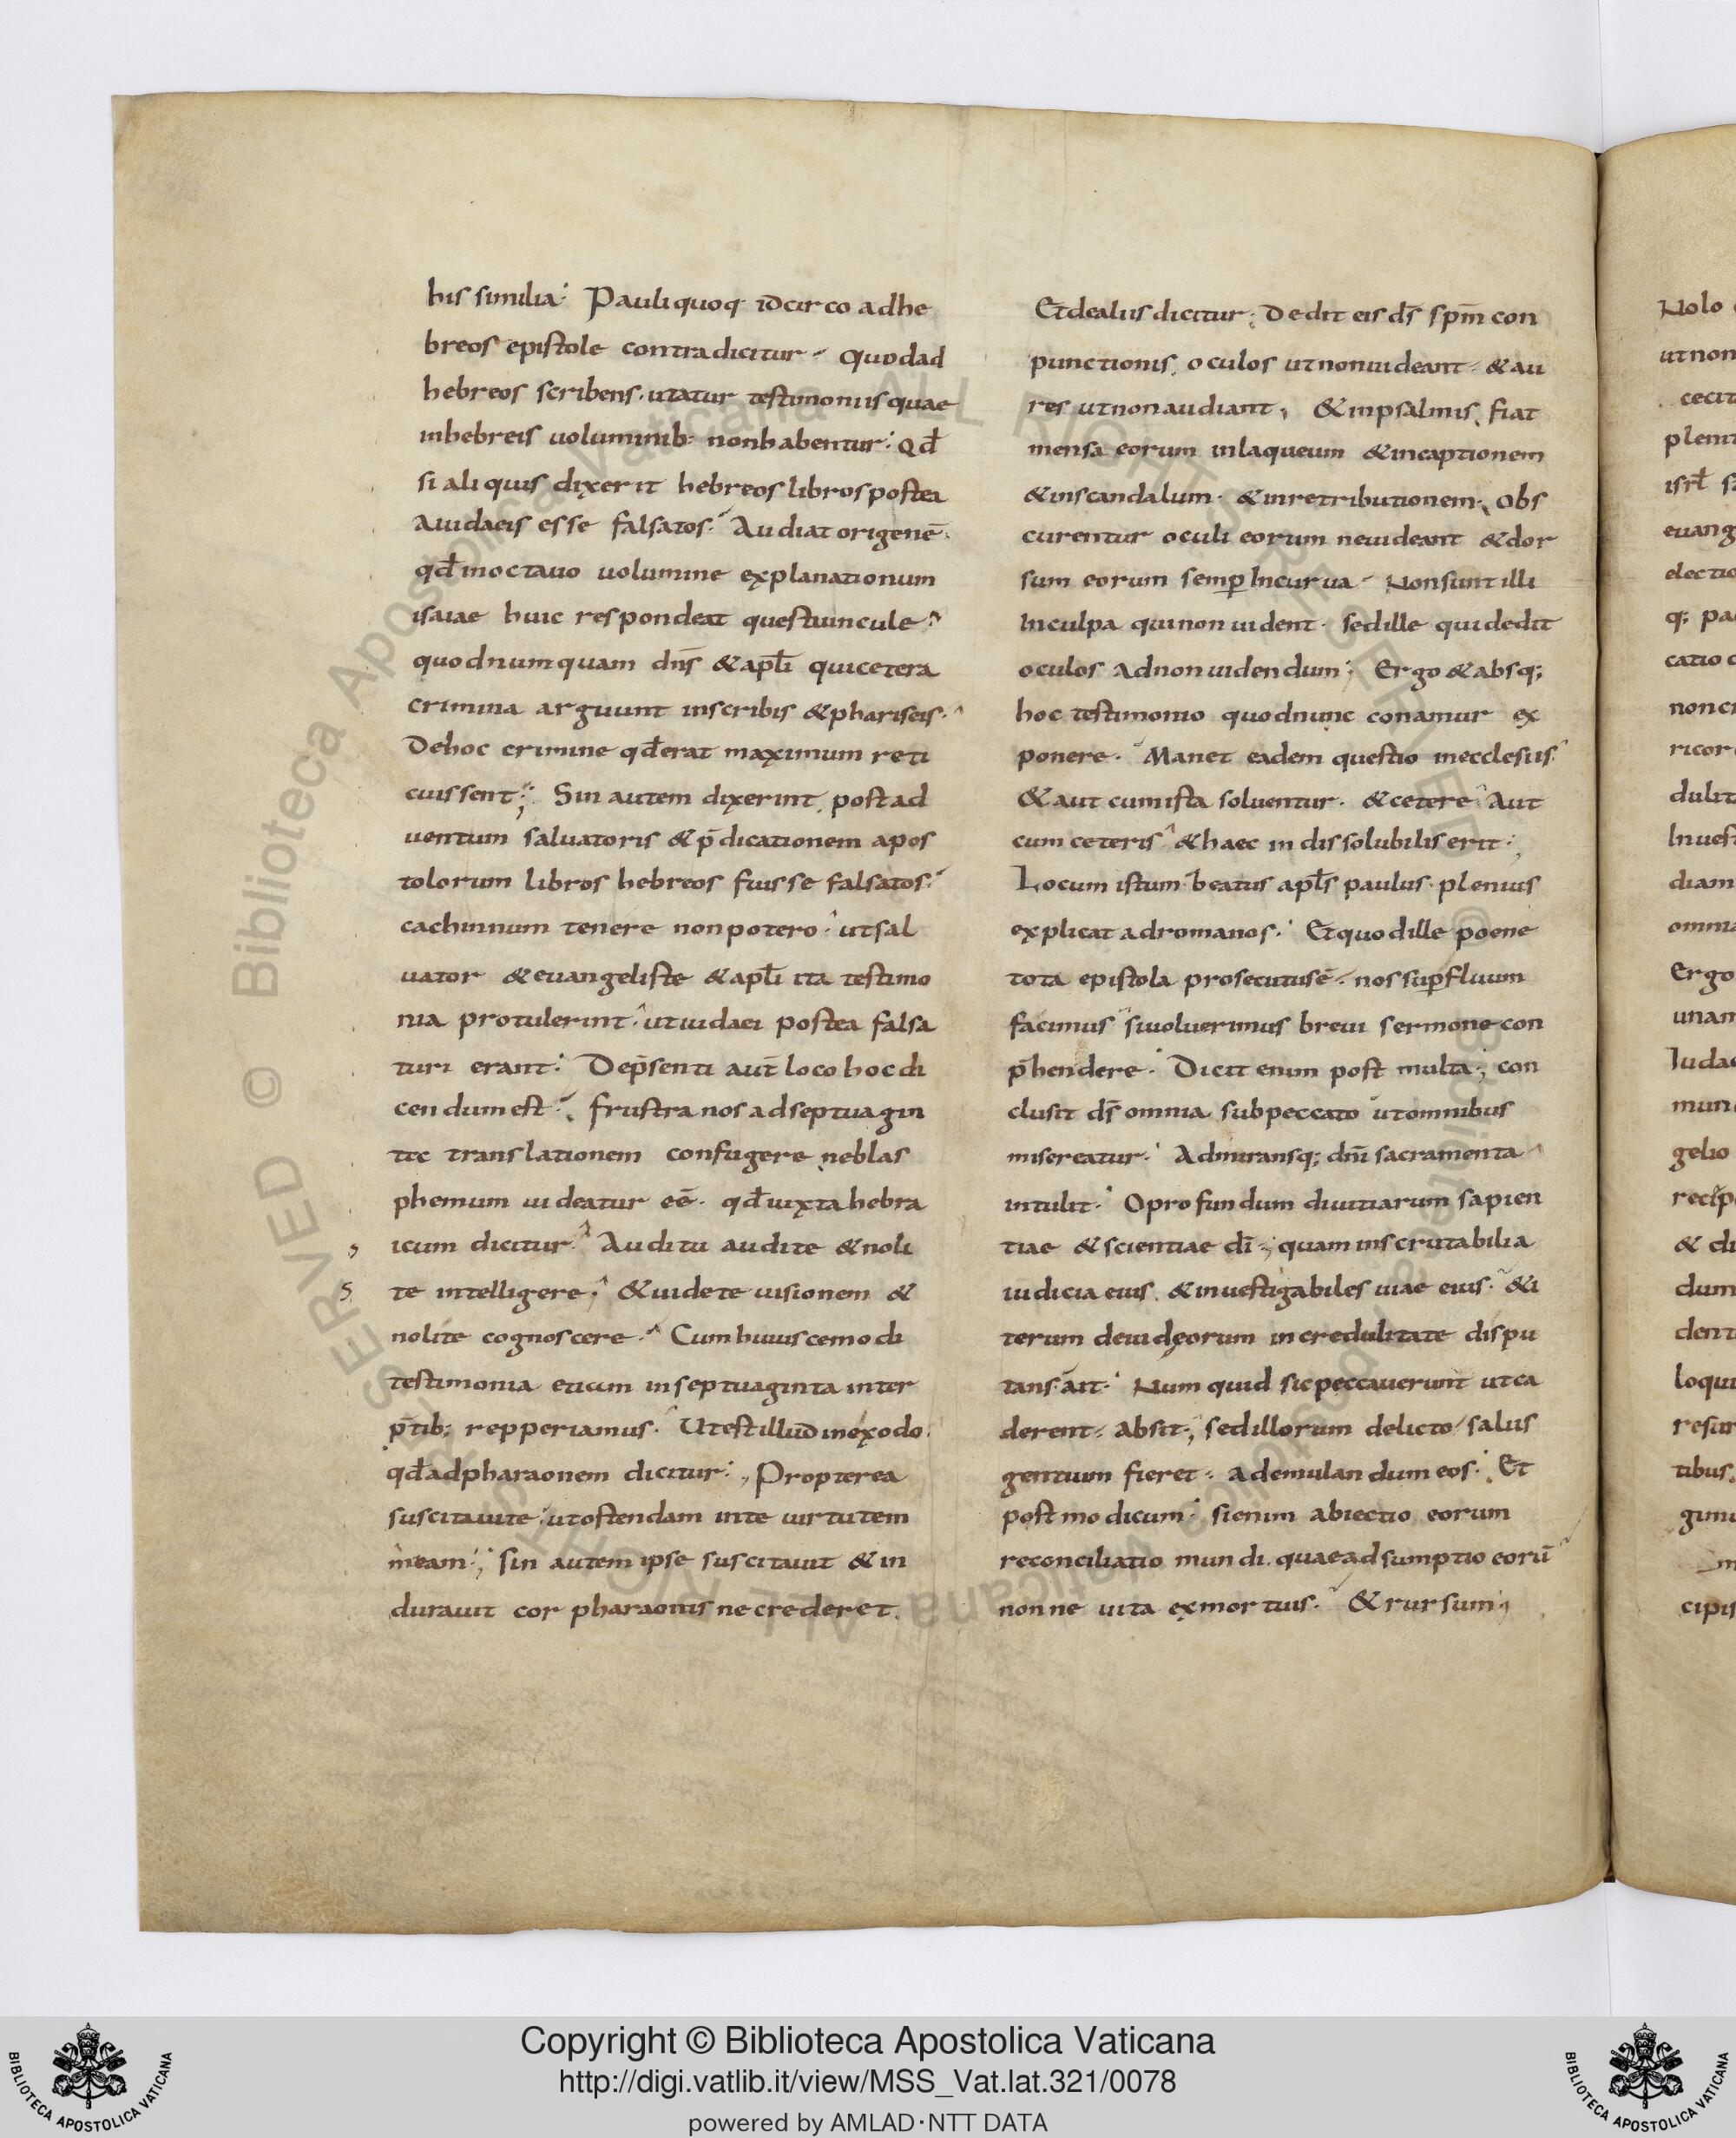 his similia. Pauli quoq idcirco adhe
breos epistole contradicitur. quod ad
hebreos scribens. utatur testimoniis quae
inhebreis uoluminib: non habentur. Qđ
si aliquis dixerit hebreos libros postea
Aiudaeis esse falsatos. Audiat origenē.
qđ inoctauo uolumine explanationum
isaiae huic respondeat questiuncule.
quod numquam dn̄s & apłi qui cetera
crimina arguunt in scribis & phariseis.
Dehoc crimine qđ erat maximum reti
cuissent; Sin autem dixerint post ad
uentum saluatoris & p̄dicationem apos
tolorum libros hebreos fuisse falsatos.
cachinnum tenere non potero. ut sal
uator & euangeliste & apłi ita testimo
nia protulerint. ut iudaei postea falsa
turi erant. Dep̄senti aut̄ loco hoc di
cendum est. frustra nos ad septuagin
te translationem confugere ne blas
phemum uideatur eē. qđ iuxta hebra
icum dicitur. Auditu audite & noli
te intelligere. & uidete uisionem &
nolite cognoscere. Cum huiuscemodi
testimonia etiam in septuaginta inter
p̄tib; repperiamus. Ut est illud in exodo.
qđ ad pharaonem dicitur. Propterea
suscitaui te. ut ostendam in te uirtutem
meam; sin autem ipse suscitauit & in
durauit cor pharaonis ne crederet.
Et de aliis dicitur; Dedit eis ds̄ sp̄m con
punctionis. oculos ut non uideant. & au
res ut non audiant; & in psalmis. fiat
mensa eorum in laqueum & in captionem
& in scandalum. & in retributionem. Obs
curentur oculi eorum ne uideant & dor
sum eorum semp̱ Incurua. Non sunt illi
In culpa qui non uident. sed ille qui dedit
oculos ad non uidendum; Ergo & absq;
hoc testimonio quod nunc conamur ex
ponere. Manet eadem questio in ecclesiis.
& aut cum ista soluentur. & cetere Aut
cum ceteris & haec indissolubilis erit;
Locum istum beatus apłs paulus. plenius
explicat ad romanos. Et quod ille poene
tota epistola prosecutus ē. nos sup̱fluum
facimus si uoluerimus breui sermone con
p̄hendere. Dicit enim post multa; con
clusit ds̄ omnia sub peccato ut omnibus
misereatur. Admiransq; dn̄i sacramenta
intulit. O profundum diuitiarum sapien
tiae & scientiae dī; quam inscrutabilia
iudicia eius. & inuestigabiles uiae eius. & i
terum de iudęorum incredulitate dispu
tans. āit. Num quid sic peccauerunt ut ca
derent. absit; sed illorum delicto salus
gentium fieret. ad emulandum eos. Et
post modicum. si enim abiectio eorum
reconciliatio mundi. quae adsumptio eorū
nonne uita ex mortuis. & rursum;
Nolo
ut non
cecit
plenit
isrł
euang
electio
q; pa
catio
non
ricor
dulit
Inuest
diam
omnia
Ergo
unam
Iudae
mun
gelio
recip
& di
dum
dent
loqui
resur
tibus
cipis
Biblioteca Apostolica Vaticana
ALL RIGHTS RESERVED
Copyright © Biblioteca Apostolica Vaticana
http://digi.vatlib.it/view/MSS_Vat.lat.321/0078
powered by AMLAD·NTT DATA
BIBLIOTECA APOSTOLICA VATICANA
BIBLIOTECA APOSTOLICA VATICANA